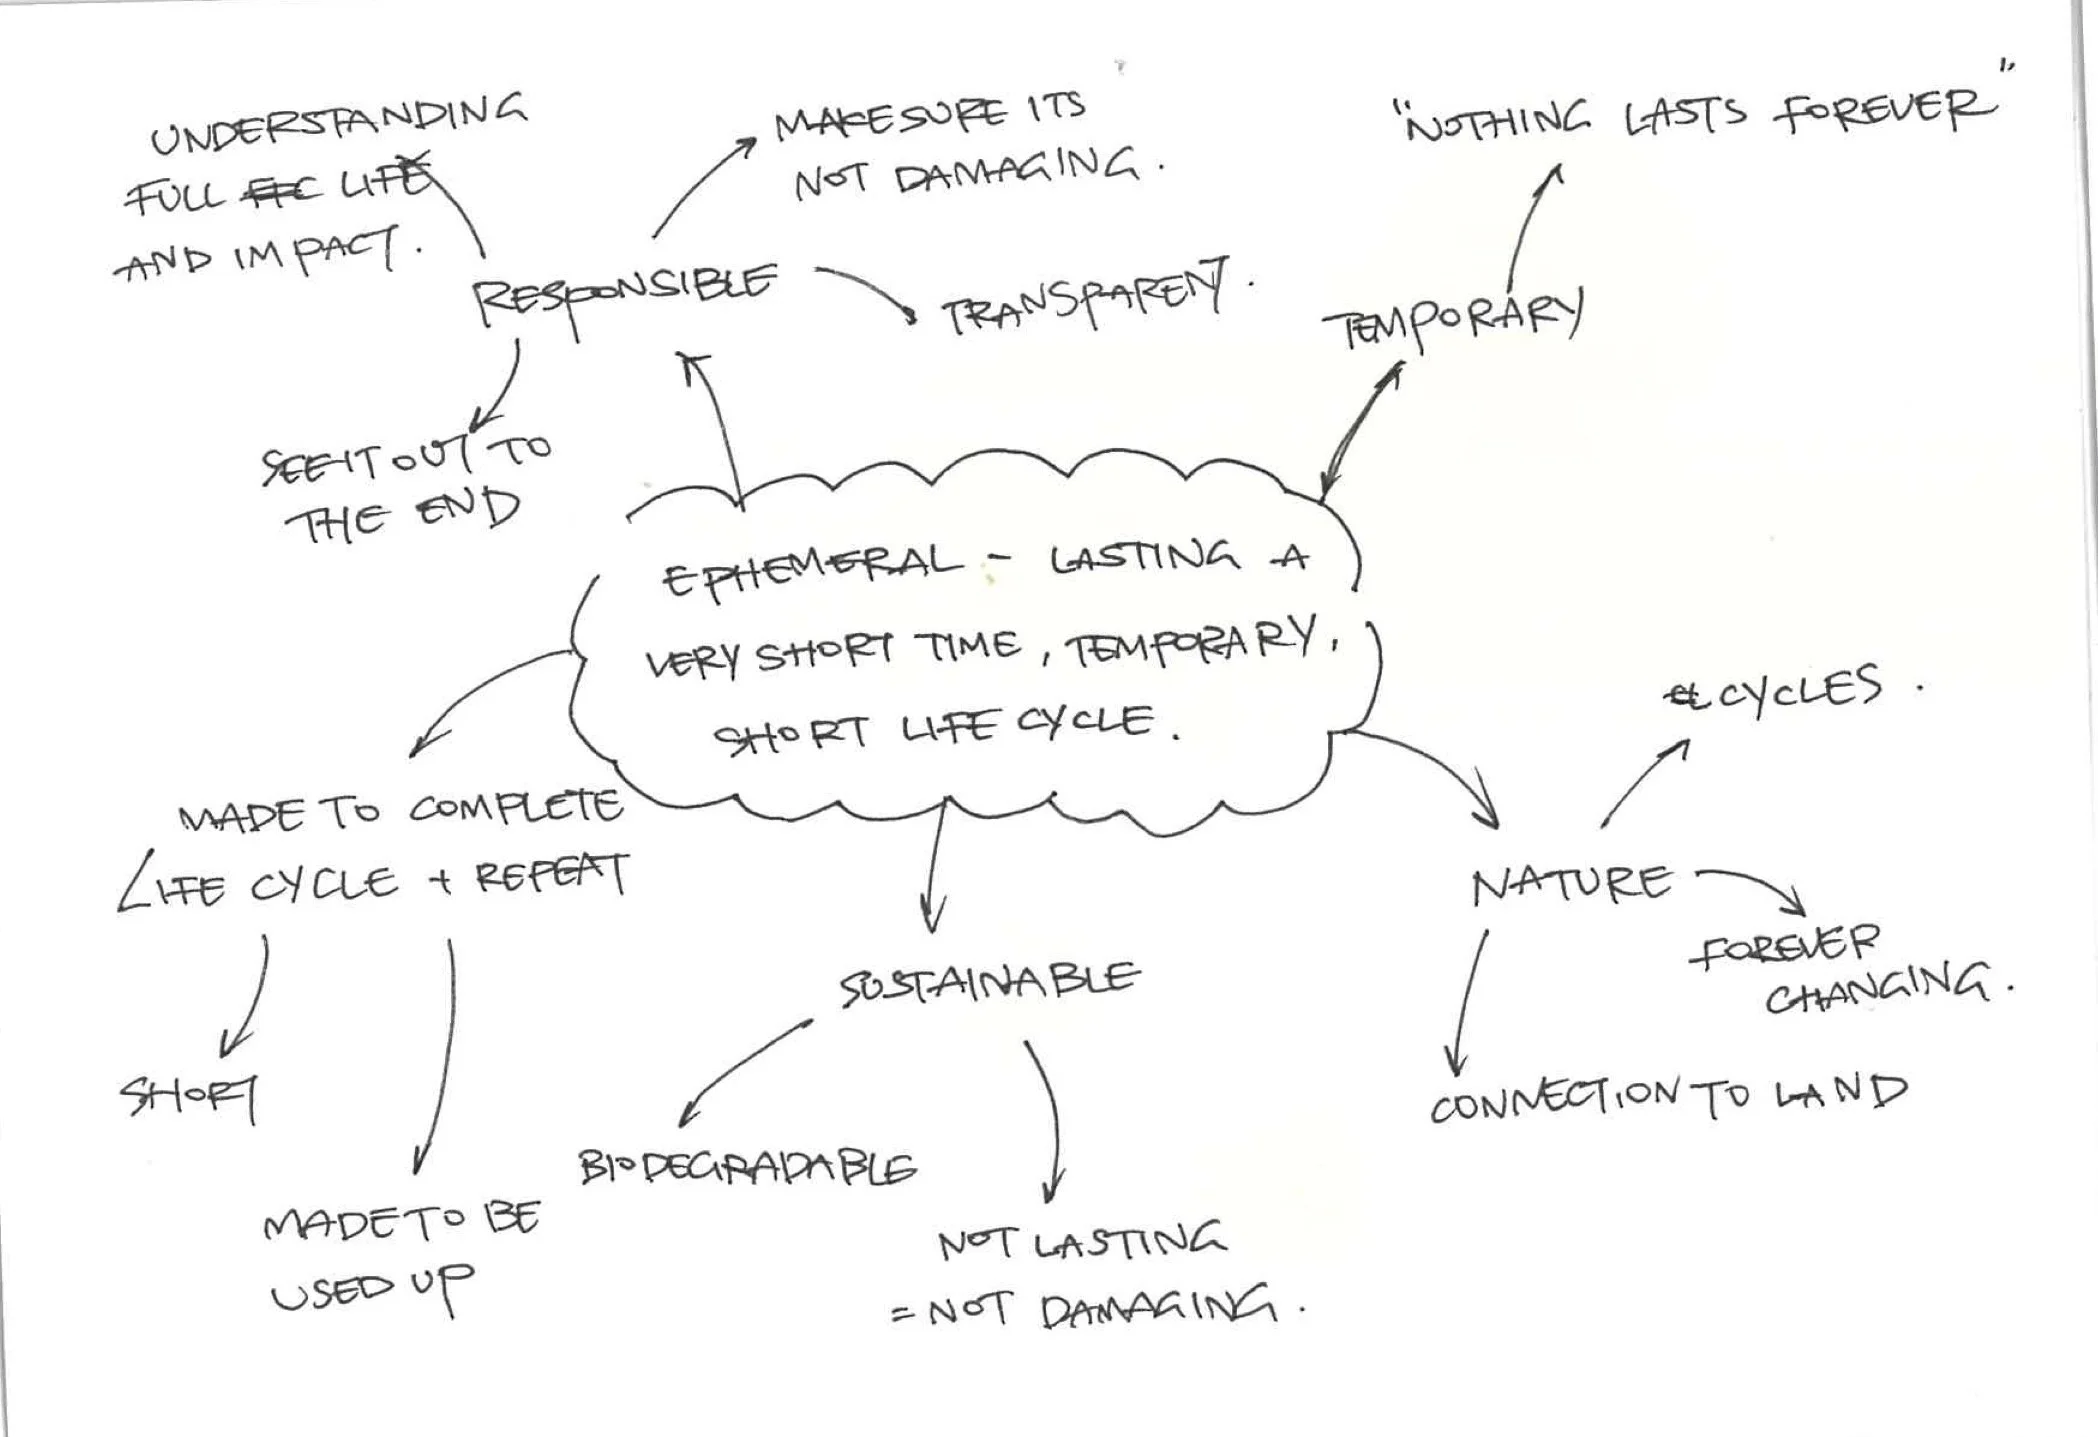 UNDERSTANDING
FULL LIFE
AND IMPACT.
MAKE SURE ITS
NOT DAMAGING.
"NOTHING LASTS FOREVER"
RESPONSIBLE
TRANSPARENT.
TEMPORARY
SEE IT OUT TO
THE END
EPHEMERAL - LASTING A
VERY SHORT TIME, TEMPORARY,
SHORT LIFE CYCLE.
CYCLES.
MADE TO COMPLETE
LIFE CYCLE + REPEAT
NATURE
FOREVER
CHANGING.
SUSTAINABLE
SHORT
CONNECTION TO LAND
BIODEGRADABLE
MADE TO BE
USED UP
NOT LASTING
= NOT DAMAGING.